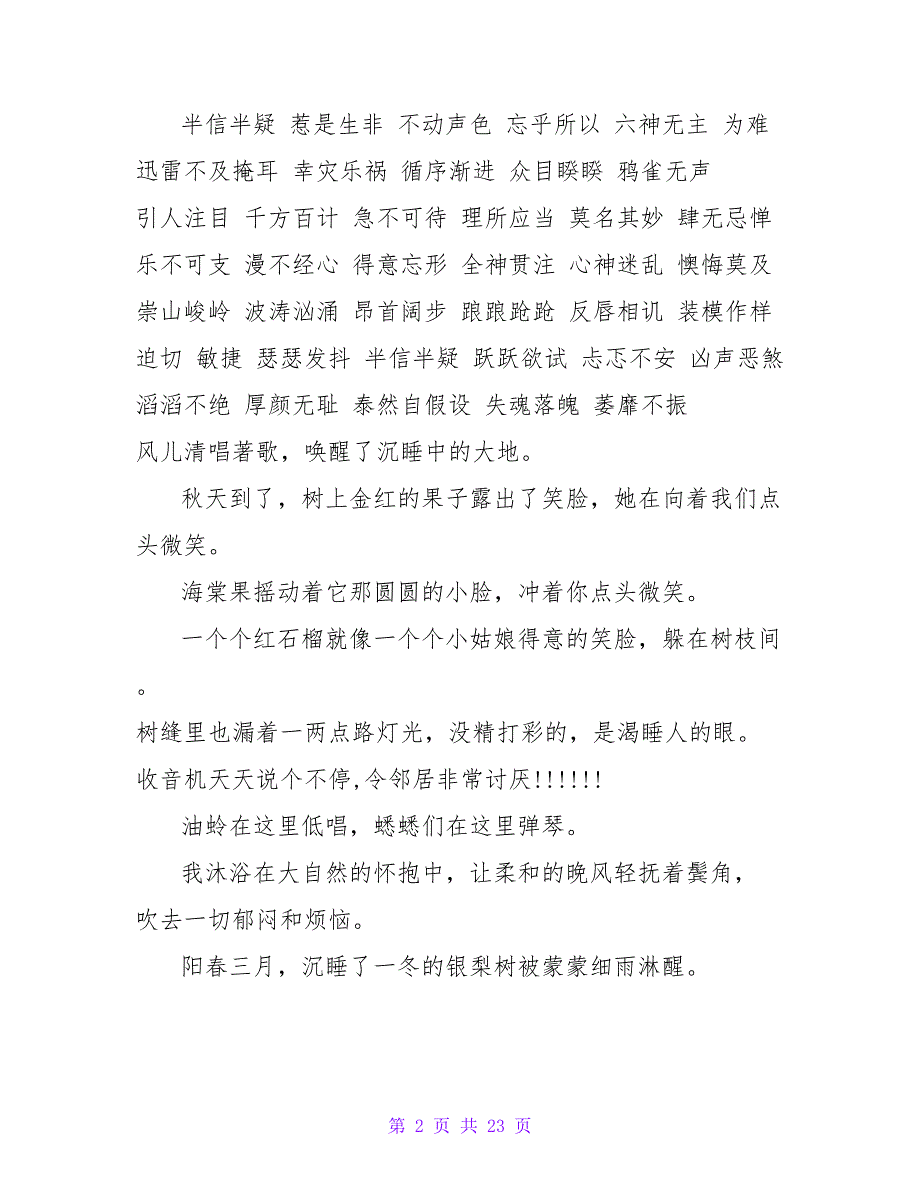 半信半疑 惹是生非 不动声色 忘乎所以 六神无主 为难
迅雷不及掩耳 幸灾乐祸 循序渐进 众目睽睽 鸦雀无声
引人注目 千方百计 急不可待 理所应当 莫名其妙 肆无忌惮
乐不可支 漫不经心 得意忘形 全神贯注 心神迷乱 懊悔莫及
崇山峻岭 波涛汹涌 昂首阔步 踉踉跄跄 反唇相讥 装模作样
迫切 敏捷 瑟瑟发抖 半信半疑 跃跃欲试 忐忑不安 凶声恶煞
滔滔不绝 厚颜无耻 泰然自假设 失魂落魄 萎靡不振
风儿清唱著歌，唤醒了沉睡中的大地。
秋天到了，树上金红的果子露出了笑脸，她在向着我们点
头微笑。
海棠果摇动着它那圆圆的小脸，冲着你点头微笑。
一个个红石榴就像一个个小姑娘得意的笑脸，躲在树枝间
。
树缝里也漏着一两点路灯光，没精打彩的，是渴睡人的眼。
收音机天天说个不停,令邻居非常讨厌!!!!!!
油蛉在这里低唱，蟋蟋们在这里弹琴。
我沐浴在大自然的怀抱中，让柔和的晚风轻抚着鬓角，
吹去一切郁闷和烦恼。
阳春三月，沉睡了一冬的银梨树被蒙蒙细雨淋醒。
第 2 页 共 23 页